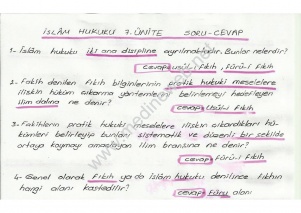 İSLÂM HUKUKU 7. ÜNİTE SORU-CEVAP
1- İslâm hukuku iki ana disipline ayrılmaktadır. Bunlar nelerdir?
cevap: usûl-i Fıkıh, fürû-i Fıkıh
2- Fakih denilen fıkıh bilginlerinin pratik hukuki meselelere
ilişkin hüküm çıkarma yöntemlerini belirlemeyi hedefleyen
ilim dalına ne denir? cevap: Usûl-i Fıkıh
3- Fakihlerin pratik hukuki meselelere ilişkin çıkardıkları hü-
kümleri belirleyip bunları sistematik ve düzenli bir şekilde
ortaya koymayı amaçlayan ilim branşına ne denir?
cevap: Fürû-i Fıkıh
4- Genel olarak Fıkıh ya da İslâm hukuku denilince fıkhın
hangi alanı kastedilir? cevap: Fürû alanı